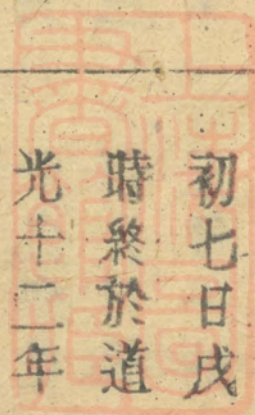 初七日戌
時終於道
光十二年